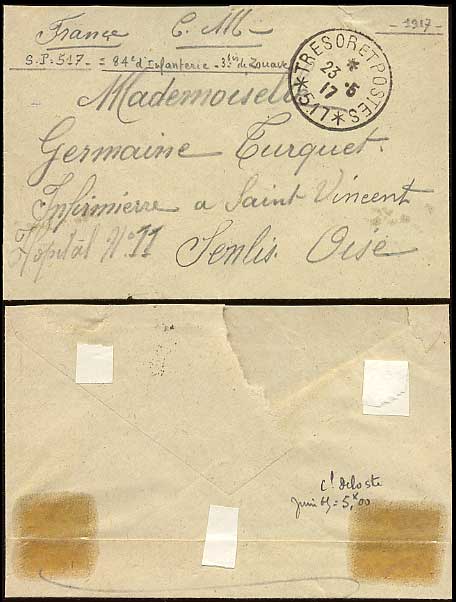 France C. M -1917-
S.P. 517 - = 84e d'Infanterie - 3e de Zouave
* TRESOR ET POSTES * 517
*
23 -5
17
Mademoiselle
Germaine Turquet.
Infirmierre a Saint Vincent
Hôpital No 11 Senlis. Oise
Juin 65 = 5,00